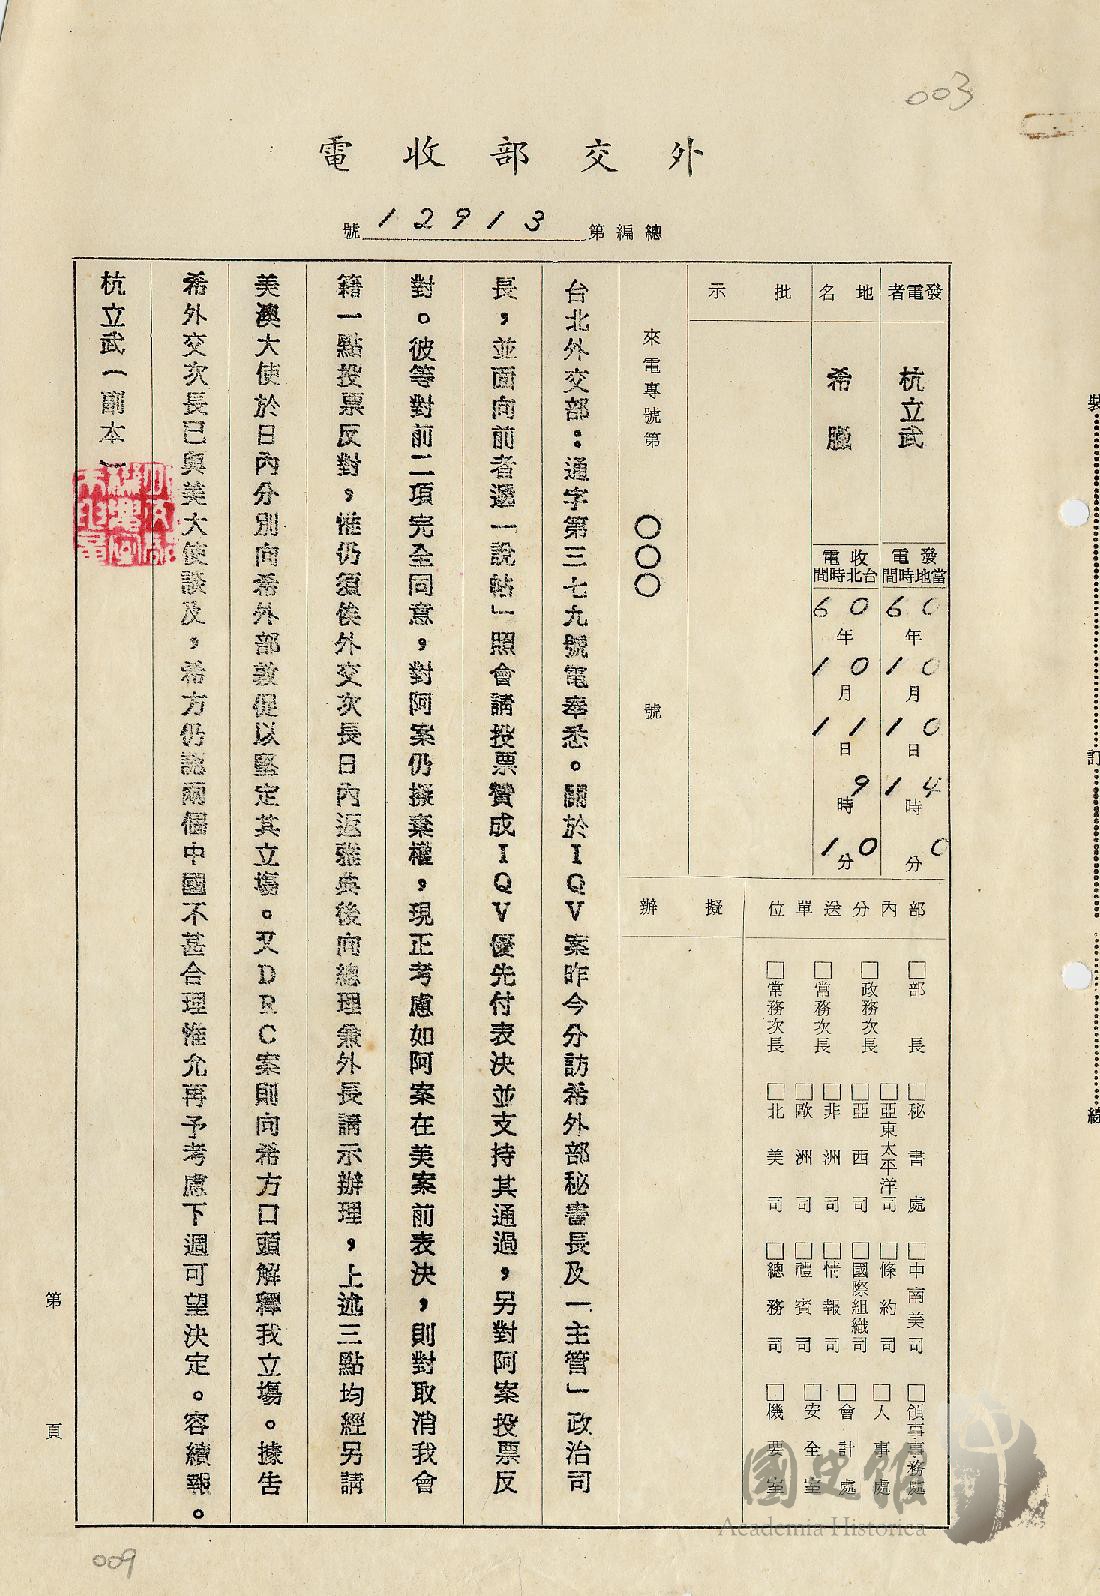 003
外交部收電
總編第 12913 號
發電者 杭立武
地名 希臘
批示
發電當地時間 60年10月10日14時0分
收電台北時間 60年10月11日9時10分
來電專號第 〇〇〇 號
部內分送單位
□部長 □政務次長 □常務次長 □常務次長
□秘書處 □亞東太平洋司 □亞西司 □非洲司 □歐洲司 □北美司
□中南美司 □條約司 □國際組織司 □情報司 □禮賓司 □總務司
□領事事務處 □人事處 □會計處 □安全室 □機要室
擬辦
台北外交部：通字第三七九號電奉悉。關於IQV案昨今分訪希外部秘書長及一主管」政治司
長，並面向前者遞一說帖」照會請投票贊成IQV優先付表決並支持其通過，另對阿案投票反
對。彼等對前二項完全同意，對阿案仍擬棄權，現正考慮如阿案在美案前表決，則對取消我會
籍一點投票反對，惟仍須俟外交次長日內返雅典後向總理兼外長請示辦理，上述三點均經另請
美澳大使於日內分別向希外部敦促以堅定其立場。又DRC案則向希方口頭解釋我立場。據告
希外交次長已與美大使談及，希方仍認兩個中國不甚合理惟允再予考慮下週可望決定。容續報。
杭立武（副本）
裝
訂
線
第 頁
國史館
Academia Historica
009